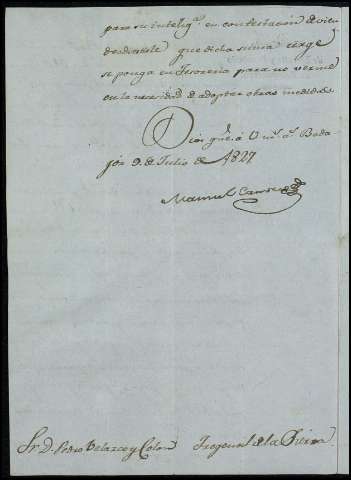 para su intelig.ª en contestacion devien
dosele que dicha suma urge
se ponga en Tesoreria para no verme
en la necesidad de adoptar otras medidas.
Dios gũe á V. m.s a.s Bada
joz 9. de Julio de 1827
Manuel
Sr. D. Pedro Velazco y Colon Fregenal de la Sierra.